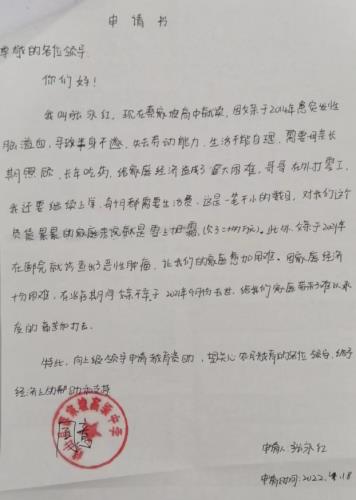 申请书
尊敬的各位领导:
你们好!
我叫张永红,现在秦家坡高中就读,因父亲于2014年患突发性
脑溢血,导致半身不遂,失去劳动能力,生活不能自理,需要母亲长
期照顾,长年吃药,给家庭经济造成了重大困难,哥哥在外打零工,
我还要继续上学,每个月都需要生活费,这是一笔不小的数目,对我们这个
负债累累的家庭来说就是雪上加霜,(欠了二十几万元)。此外,父亲于2021年
在医院就诊查出了恶性肿瘤,让我们的家庭愈加困难。因家庭经济
十分困难,在治疗期间父亲不幸于2021年9月份去世,给我们家庭带来了难以承
度的痛苦和打击。
特此,向上级领导申请教育资助,望关心农村教育的各位领导,给予
经济上的帮助和支持
高级中学
申请人:张永红
申请时间:2022.4.18